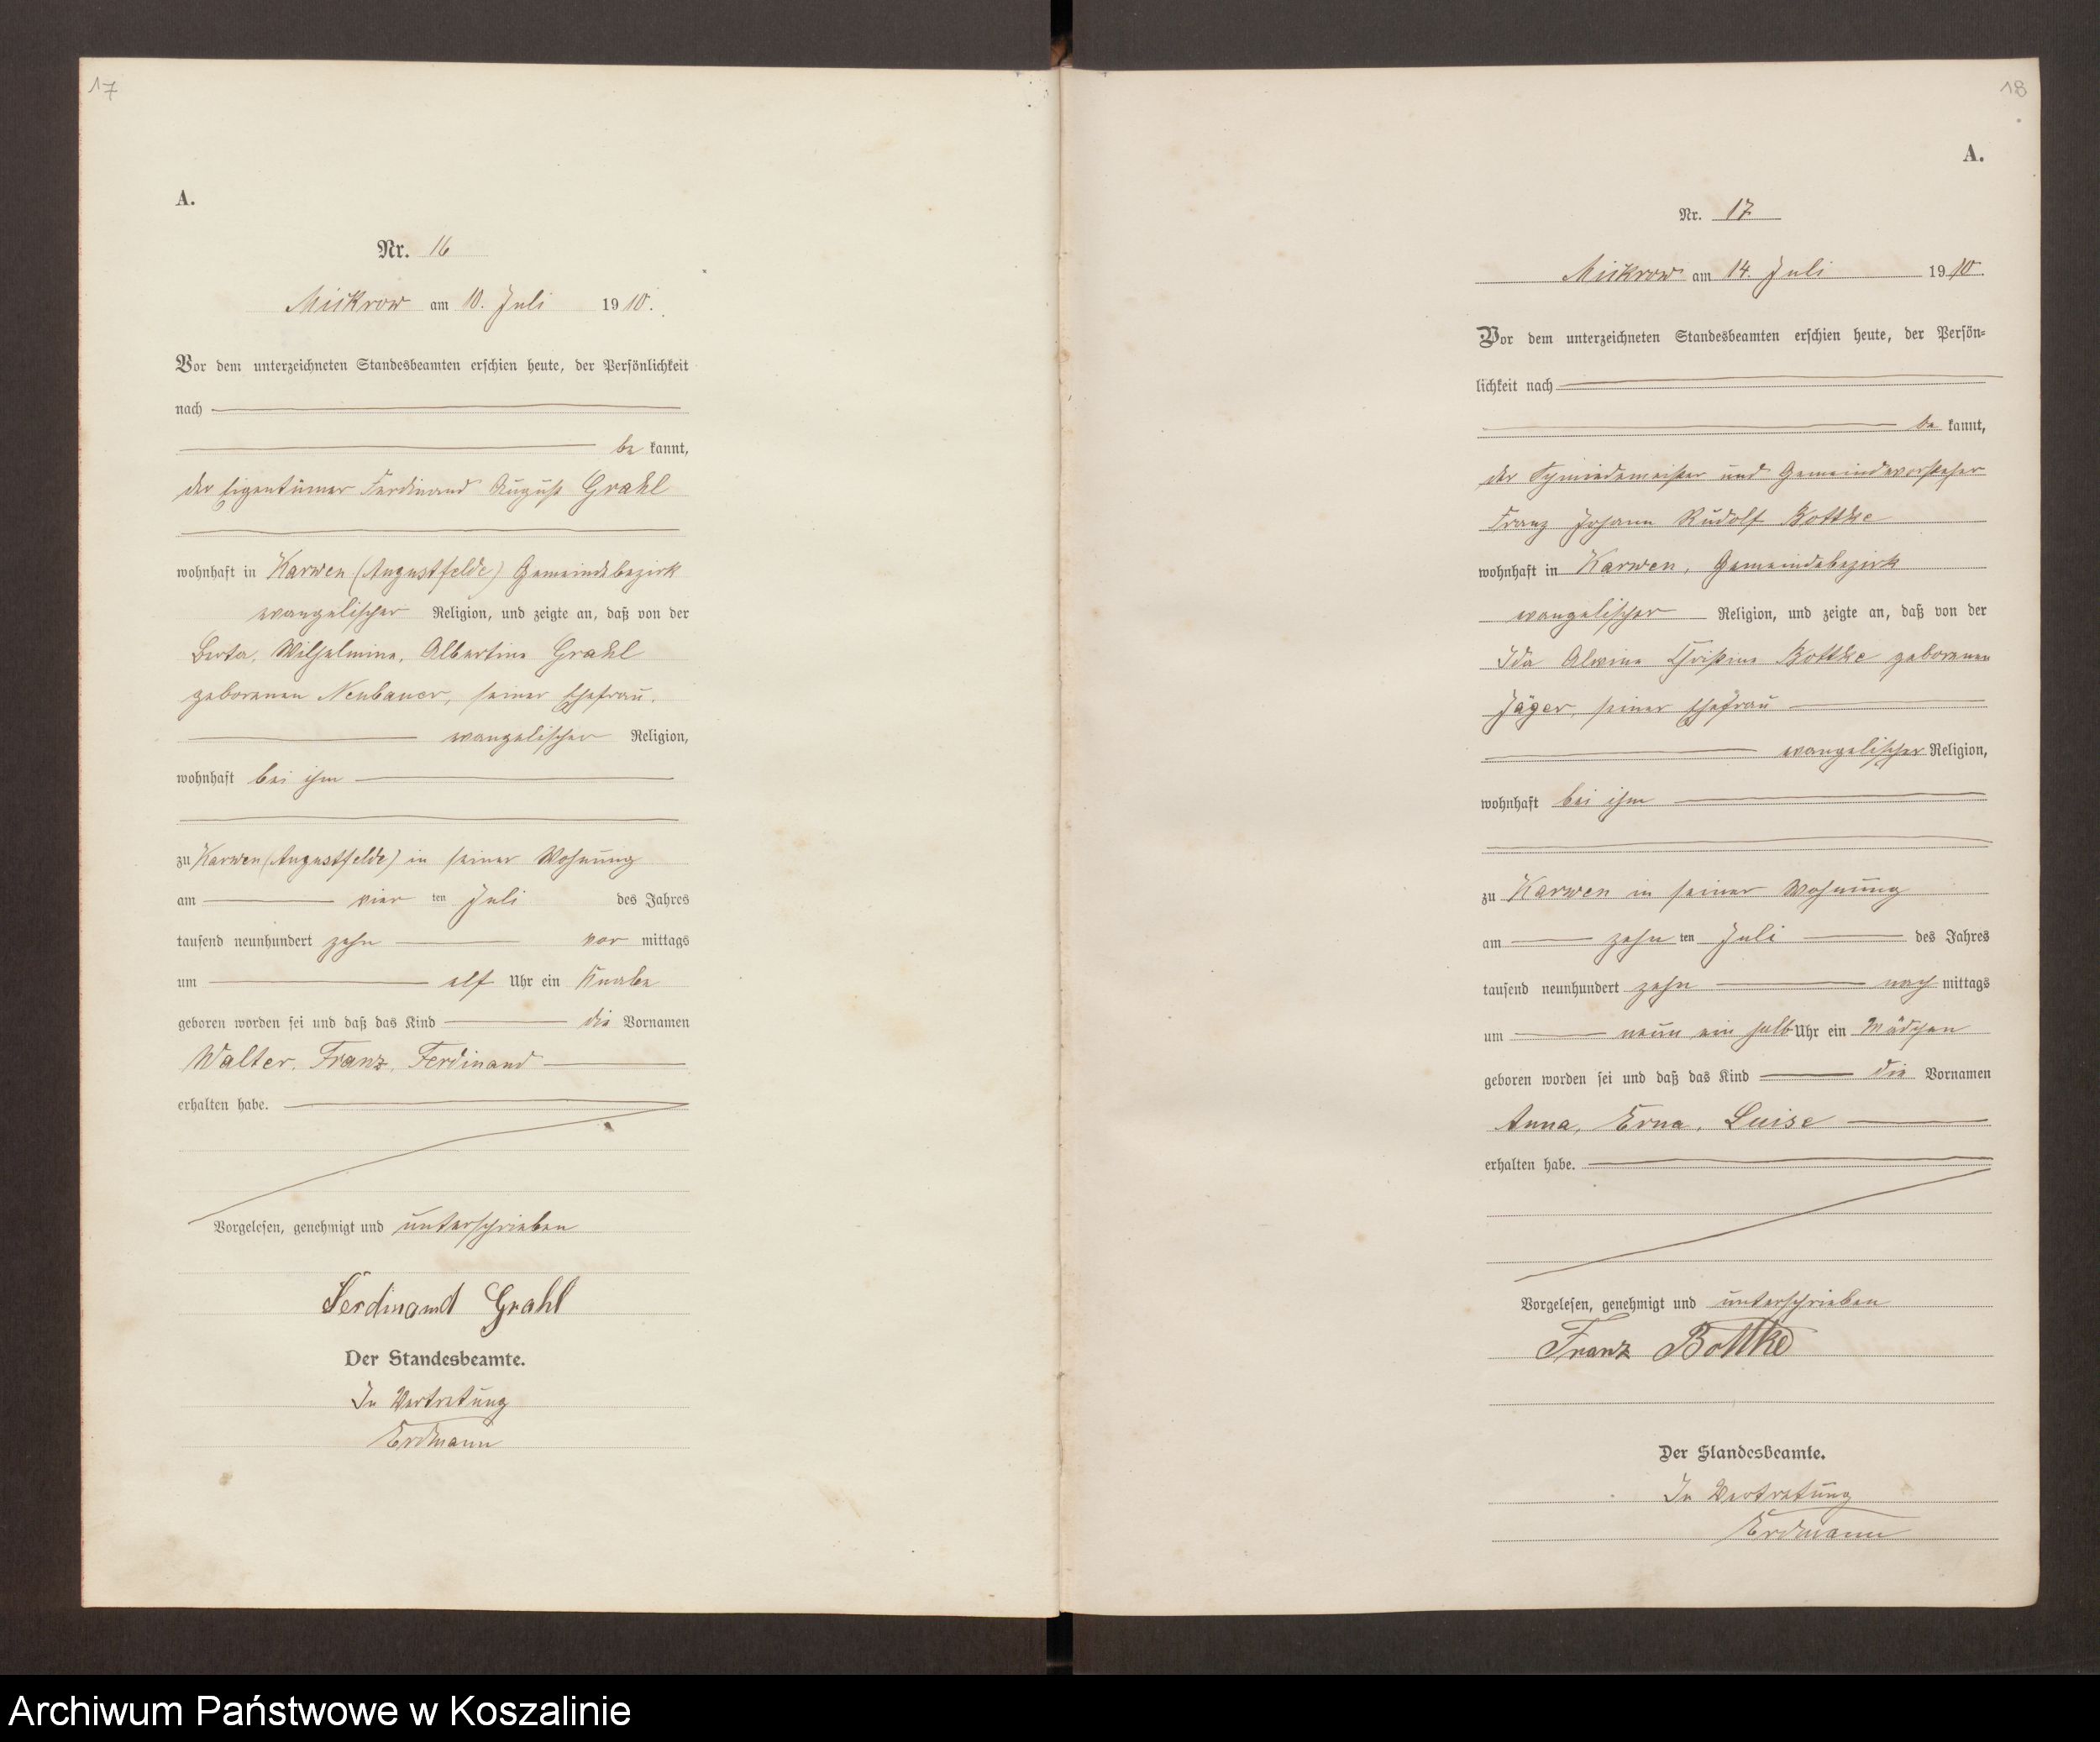 17
A.
Nr. 16
Mickrow am 10. Juli 1910.
Vor dem unterzeichneten Standesbeamten erschien heute, der Persönlichkeit
nach
be kannt,
der Eigentümer Ferdinand August Grahl
wohnhaft in Karwen (Augustfelde) Gemeindebezirk
evangelischer Religion, und zeigte an, daß von der
Berta, Wilhelmine, Albertine Grahl
geborenen Neubauer, seiner Ehefrau,
evangelischer Religion,
wohnhaft bei ihm
zu Karwen (Augustfelde) in seiner Wohnung
am vier ten Juli des Jahres
tausend neunhundert zehn vor mittags
um elf Uhr ein Knabe
geboren worden sei und daß das Kind die Vornamen
Walter, Franz, Ferdinand
erhalten habe.
Vorgelesen, genehmigt und unterschrieben
Ferdinand Grahl
Der Standesbeamte.
In Vertretung
Erdmann
18
A.
Nr. 17
Mickrow am 14. Juli 1910.
Vor dem unterzeichneten Standesbeamten erschien heute, der Persön-
lichkeit nach
be kannt,
der Schmiedemeister und Gemeindevorsteher
Franz Johann Rudolf Bottke
wohnhaft in Karwen, Gemeindebezirk
evangelischer Religion, und zeigte an, daß von der
Ida Alwine Christine Bottke geborenen
Jäger, seiner Ehefrau
evangelischer Religion,
wohnhaft bei ihm
zu Karwen in seiner Wohnung
am zehn ten Juli des Jahres
tausend neunhundert zehn nach mittags
um neun ein halb Uhr ein Mädchen
geboren worden sei und daß das Kind die Vornamen
Anna, Erna, Luise
erhalten habe.
Vorgelesen, genehmigt und unterschrieben
Franz Bottke
Der Standesbeamte.
In Vertretung
Erdmann
Archiwum Państwowe w Koszalinie